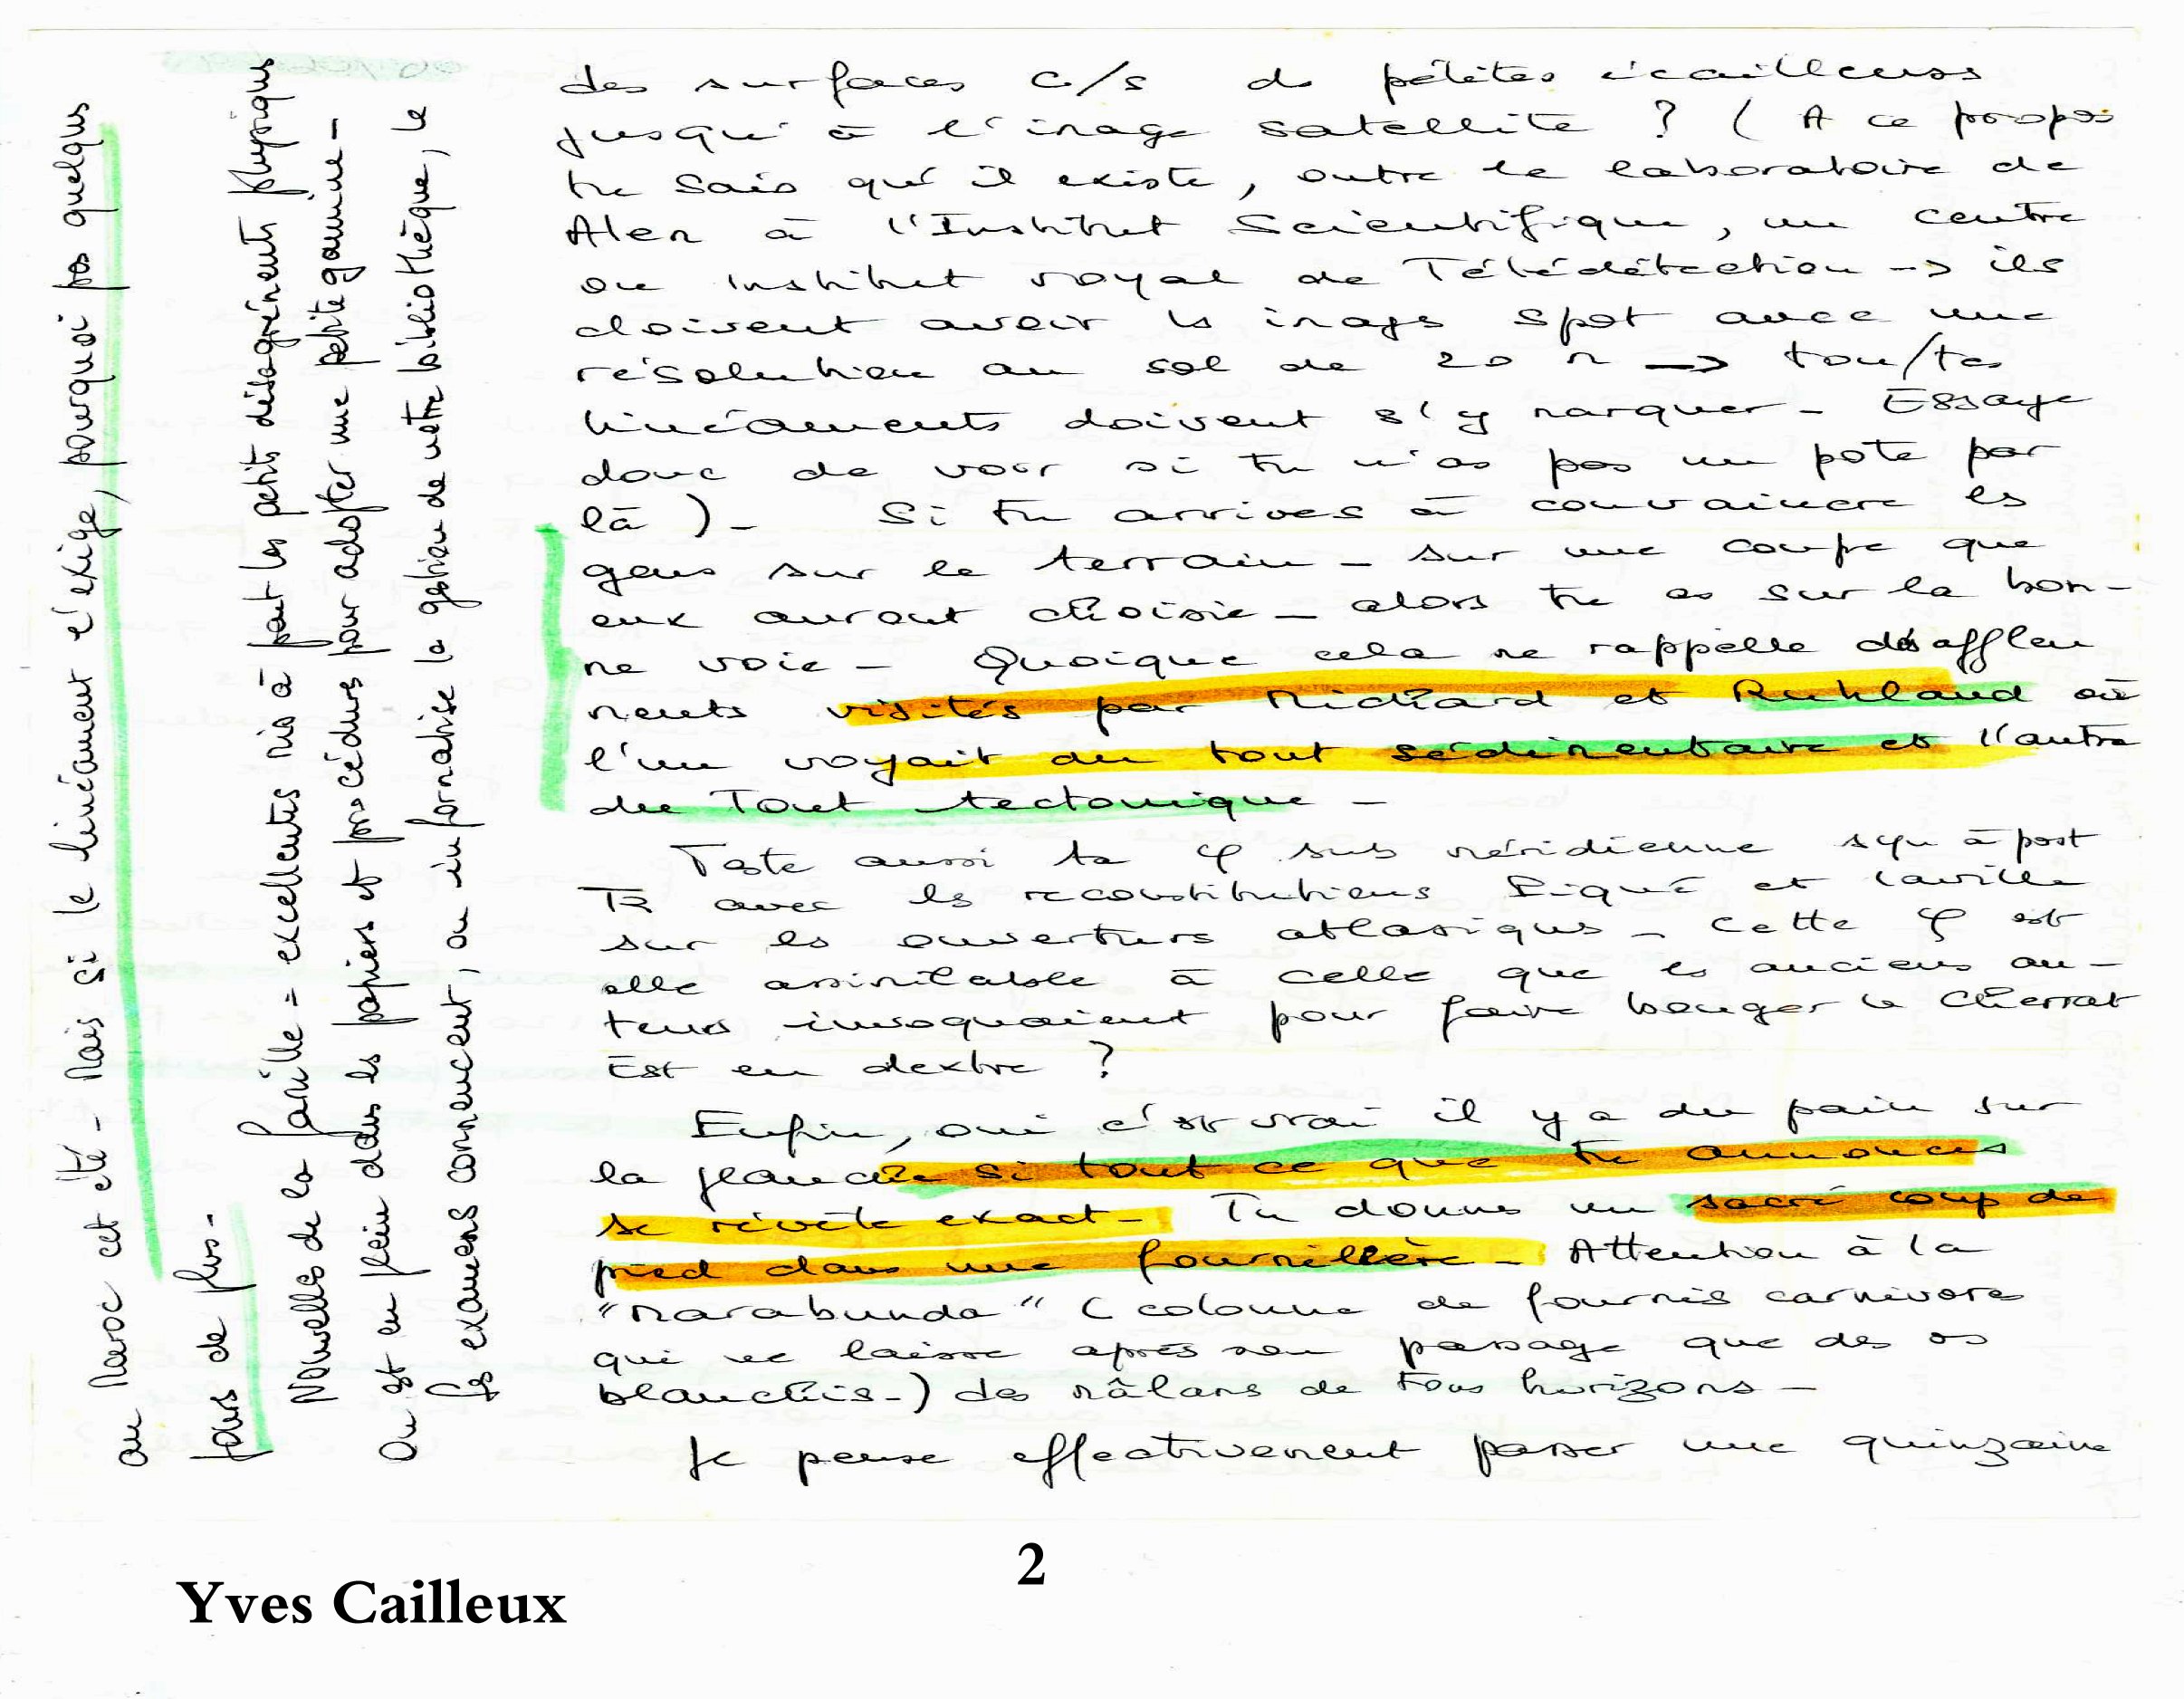 des surfaces C/S de pélites écailleuses
jusqu'à l'image satellite ? ( A ce propos
tu sais qu'il existe, outre le laboratoire de
Alem à l'Institut Scientifique, un centre
ou institut royal de Télédétection -> ils
doivent avoir les images Spot avec une
résolution au sol de 20 m -> tou/tes
linéaments doivent s'y marquer - Essaye
donc de voir si tu n'as pas un pote par
là ) - Si tu arrives à convaincre les
gens sur le terrain - sur une coupe que
eux auront choisie - alors tu es sur la bon-
ne voie - Quoique cela me rappelle des affleu
rements visités par Michard et Ruhland où
l'un voyait du tout sédimentaire et l'autre
du Tout tectonique -
Teste aussi ta φ sub méridienne syn à post
TR avec les reconstitutions Piqué et Laville
sur les ouvertures atlasiques - Cette φ est
elle assimilable à celle que les anciens au-
teurs invoquaient pour faire bouger le Cherrat
Est en dextre ?
Enfin, oui c'est vrai il y a du pain sur
la planche si tout ce que tu annonces
se révèle exact - Tu donnes un sacré coup de
pied dans une fourmillère - Attention à la
"Marabunda" ( colonne de fourmis carnivores
qui ne laisse après son passage que des os
blanchis - ) des mâlans de tous horizons -
Je pense effectivement passer une quinzaine
au Maroc cet été - Mais si le linéament l'exige, pourquoi pas quelques
jours de plus -
Nouvelles de la famille = excellentes mis à part les petits désagréments physiques
On est en plein dans les papiers et procédures pour adopter une petite gamine -
Les examens commencent, on informatise la gestion de notre bibliothèque, le
2
Yves Cailleux